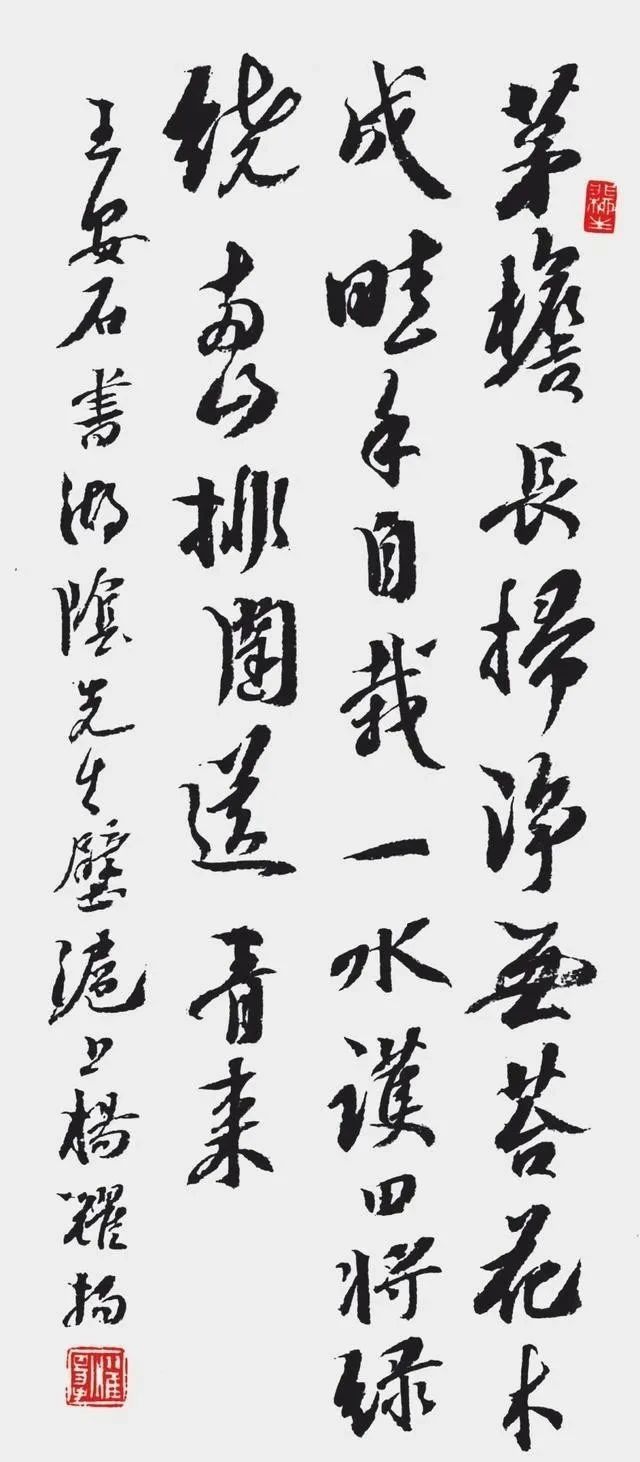 茅檐長掃淨無苔花木
成畦手自栽一水護田將緑
繞兩山排闥送青來
王安石書湖陰先生壁滬上楊耀揚